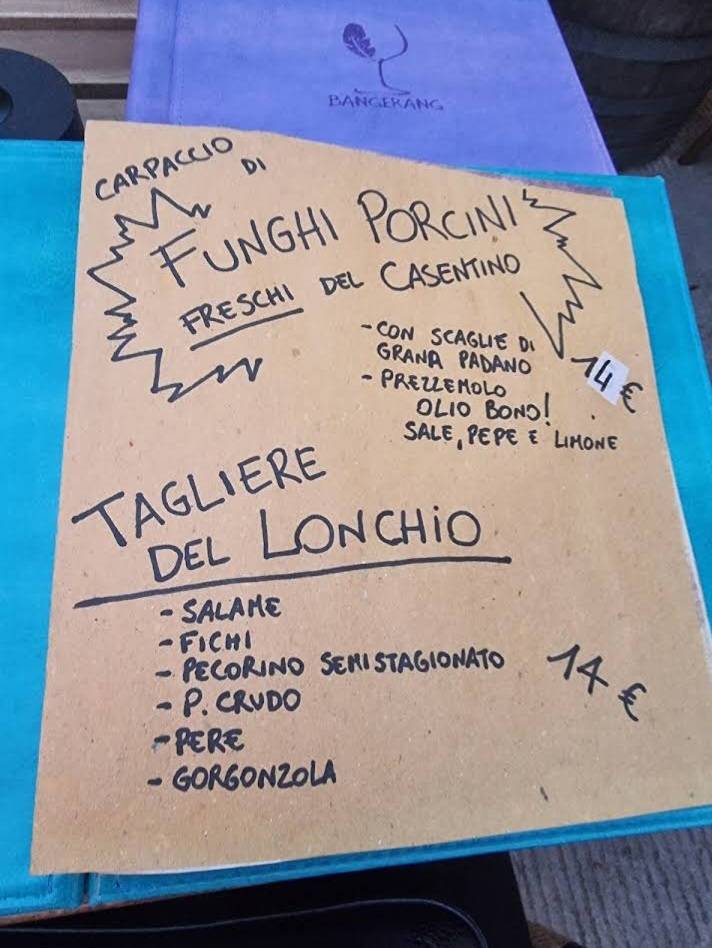 BANGERANG
CARPACCIO
DI
FUNGHI PORCINI
FRESCHI DEL CASENTINO
- CON SCAGLIE DI
GRANA PADANO
- PREZZEMOLO
OLIO BONO!
SALE, PEPE E LIMONE
14 €
TAGLIERE
DEL LONCHIO
- SALAME
- FICHI
- PECORINO SEMISTAGIONATO
- P. CRUDO
- PERE
- GORGONZOLA
14 €